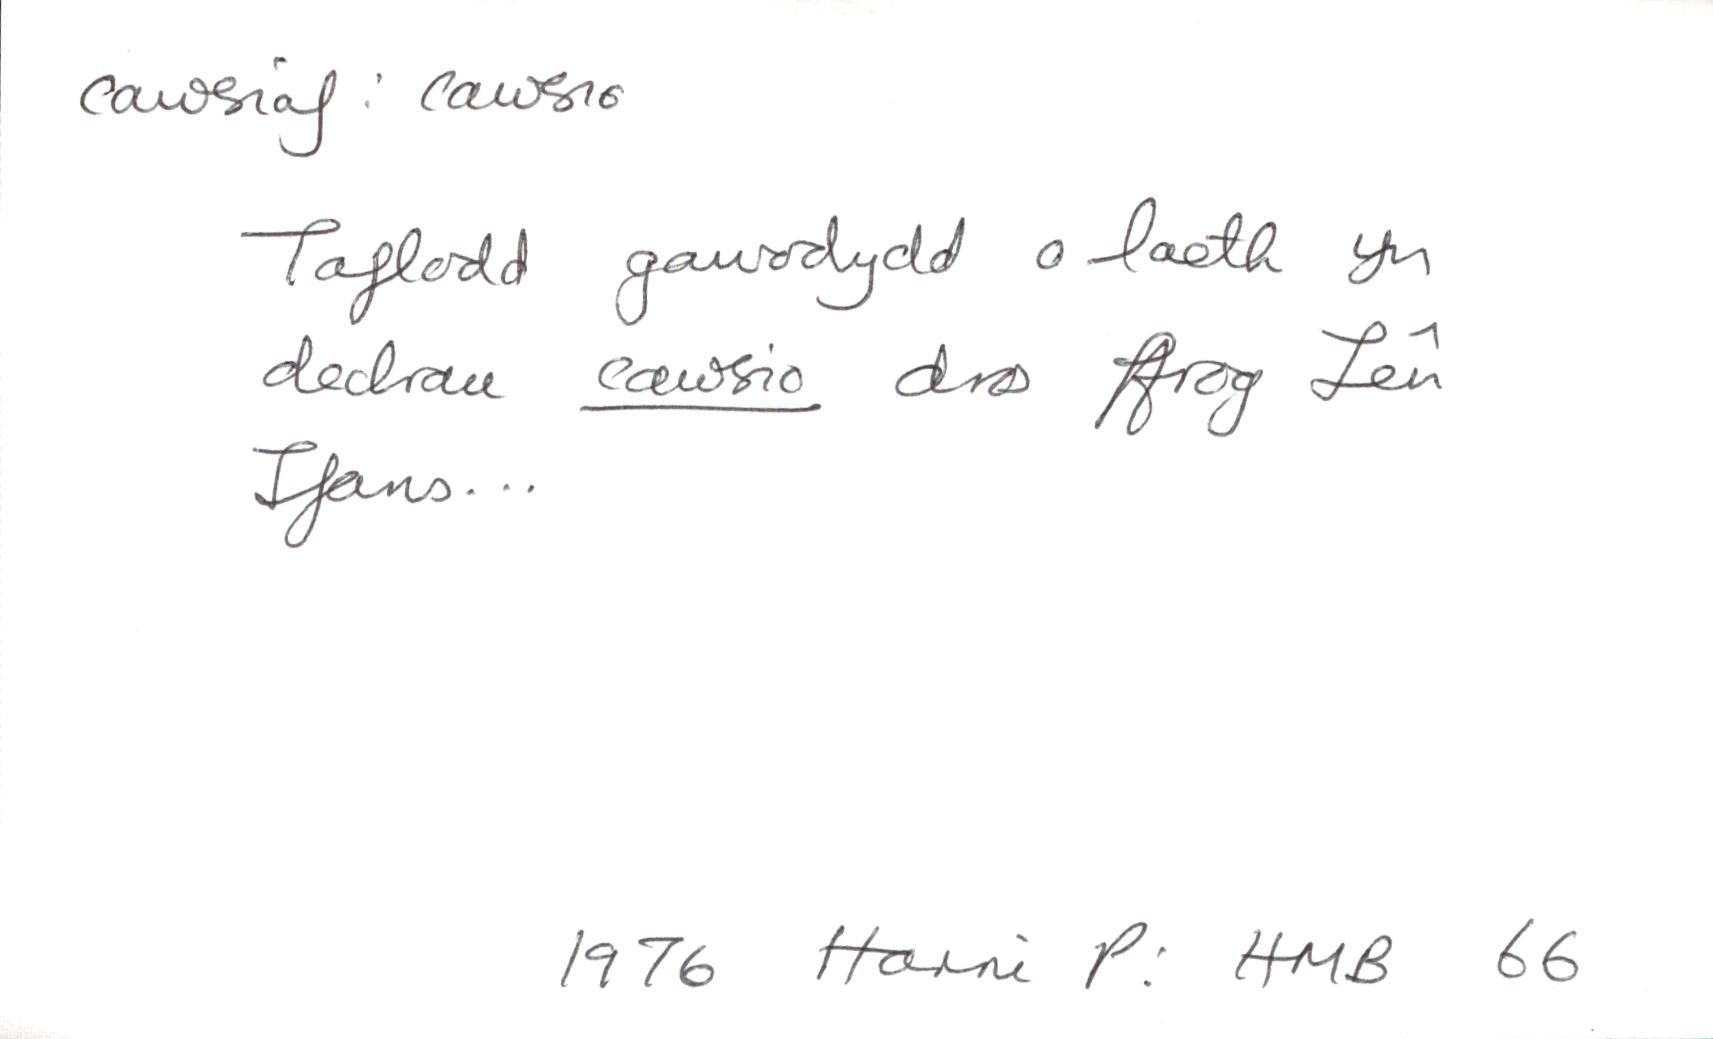 cawsiaf : cawsio
Taflodd gawodydd o laeth yn
dechrau cawsio dros ffrog Lên
Ifans...
1976 Harri P: HMB 66